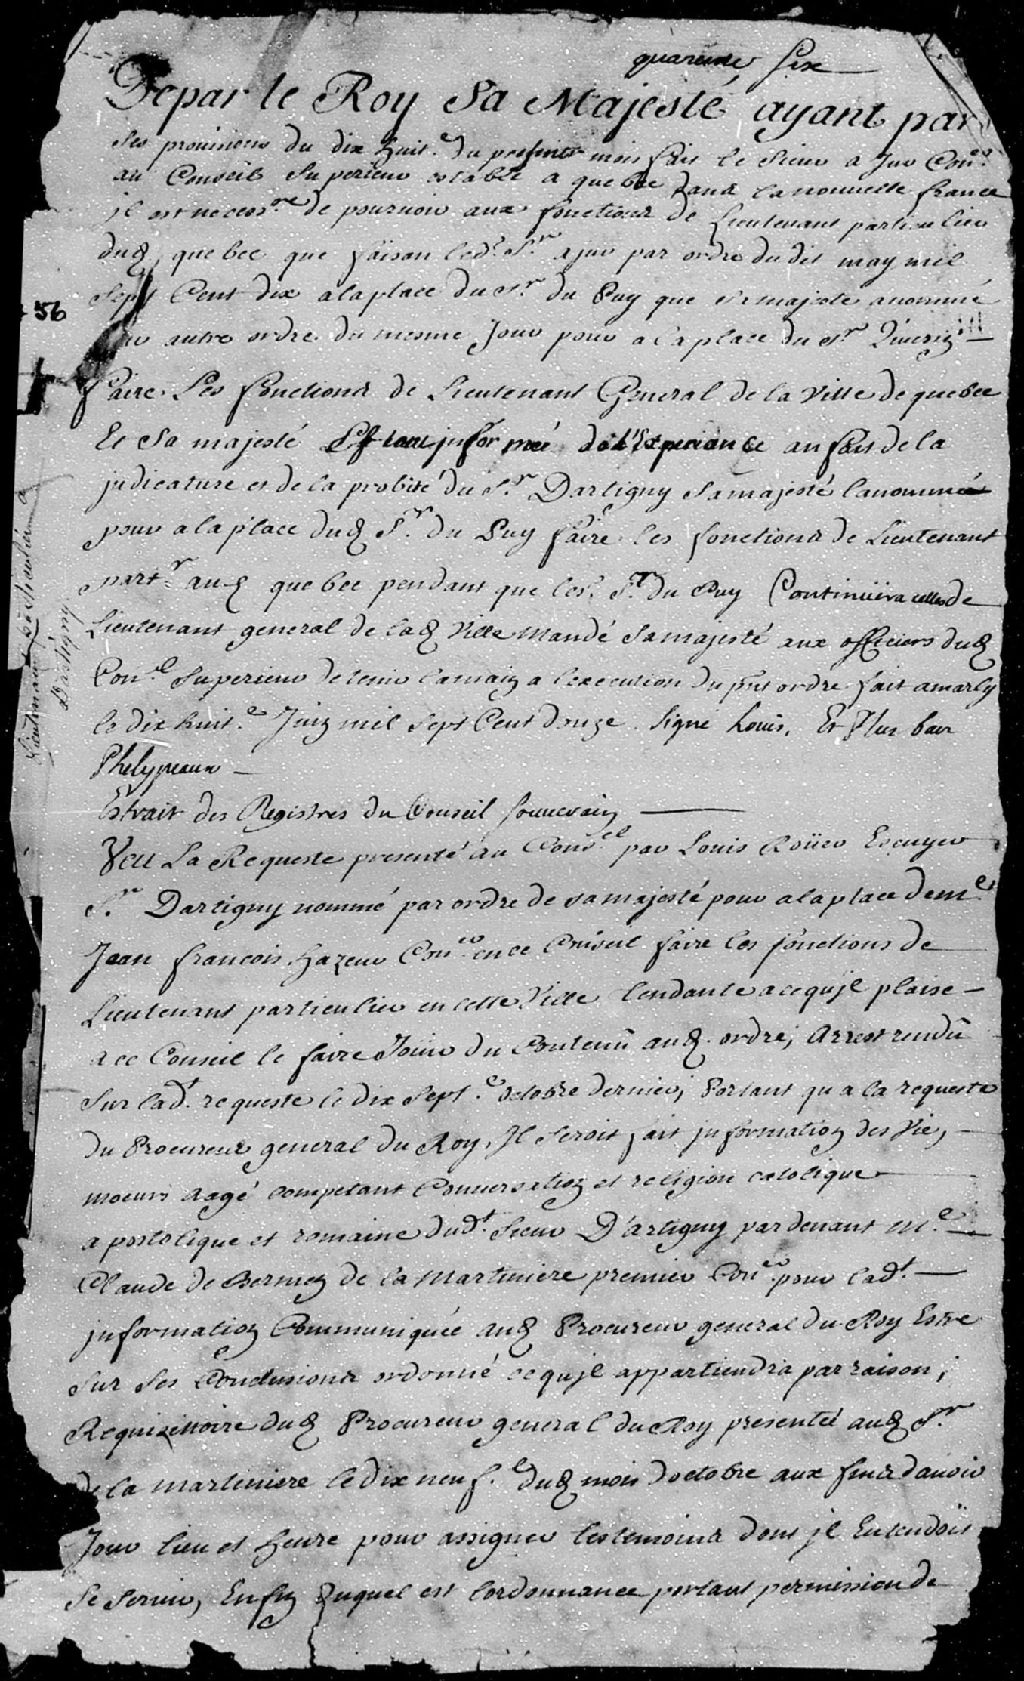 quarente six
De par le Roy Sa Majesté ayant par
ses provisions du dix huit.e du present mois fait le Sieur a Juv Con.er
au Conseil Superieur estably a quebec dans la nouvelle france
jl est necess.re de pourvoir aux fonctions de Lieutenant particulier
dud. quebec que faisoit led. S.r ajuv par ordre du dit may mil
Sept Cent dix a la place du S.r du Puy que sa majesté a nommé
autre ordre du mesme Jour pour a la place du S.r
56
faire Les fonctions de Lieutenant General de la Ville de quebec
Et Sa majesté Estant jnformée de l'Experiance au fait de la
judicature et de la probité du S.r Dartigny Sa majesté la nommé
pour a la place dud. S.r du Puy faire les fonctions de Lieutenant
part.r aud. quebec pendant que led. S.r du Puy Continüera celles de
Lieutenant general de lad. Ville Mande Sa majesté aux officiers dud.
Con.el Superieur de tenir la main a lexecution du pnt ordre fait a marly
le dix huit.e Juin mil Sept Cent douze. Signé Louis, Et Plus bas
Phelypeaux
Lieutenant particulier
Dartigny
Extrait des Registres du Conseil Souverain
Veu La Requeste presenté au Cons.el par Louis Roüer Escuyer
S.r Dartigny nommé par ordre de sa majesté pour a la place de me
Jean francois hazeur Con.er en ce Conseil faire les fonctions de
Lieutenant particulier en cette Ville tendante a ce qujl plaise
a ce Conseil le faire Jouir du Contenû aud. ordre; Arrest rendû
Sur lad.t requeste le dix Sept.e octobre dernier; Portant qu a la requeste
du Procureur general du Roy, Jl Seroit fait jnformation des Vie,
moeurs aagé competant Conversation et religion catolique
apostolique et romaine dud.t Sieur D'artigny par devant M.e
Claude de Bermen de la Martiniere premier Con.er pour lad.t
jnformation Communiquée aud. Procureur general du Roy Estre
Sur Ses Conclusions ordonné ce qujl appartiendra par raison;
Requisitoire dud. Procureur general du Roy presenté aud. S.r
de la martiniere le dix neuf.e dud. mois doctobre aux fins davoir
Jour lieu et heure pour assigner les temoins dont jl Entendoit
Se Servir, Enfin duquel est lordonnance portant permission de